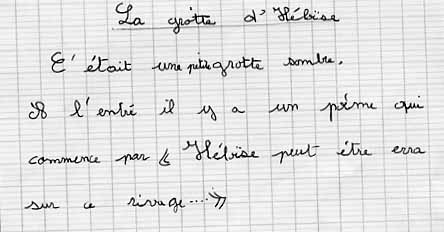 La grotte d'Héloïse
C'était une petite grotte sombre.
A l'entré il y a un poéme qui
commence par « Héloïse peut être erra
sur ce rivage....»